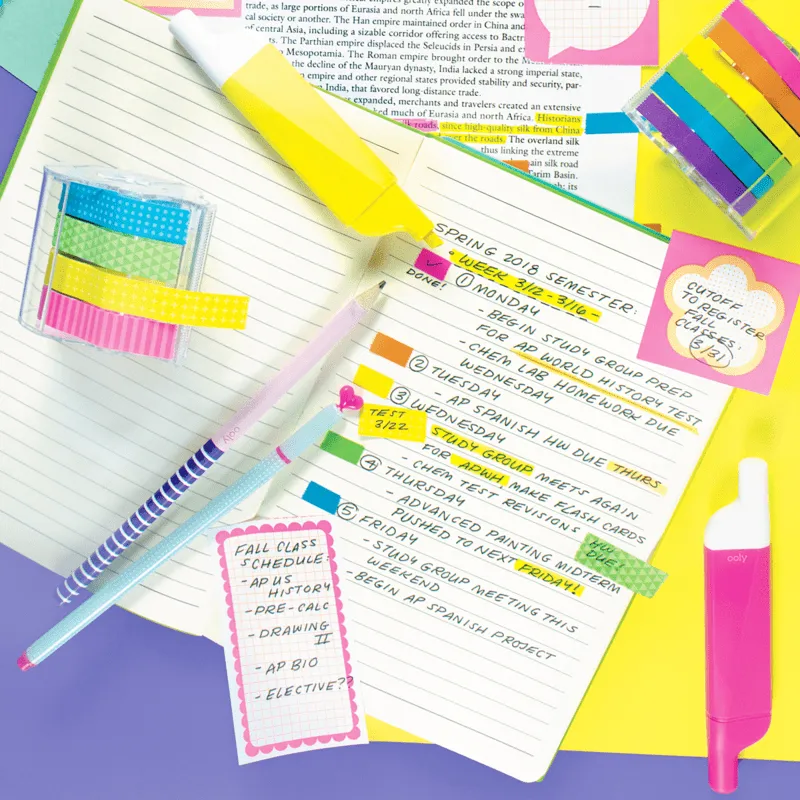 trade, as large portions of Eurasia and north Africa fell under the swa
cal society or another. The Han empire maintained order in China and
of central Asia, including a sizable corridor offering access to Bactr
ts. The Parthian empire displaced the Seleucids in Persia and e
Mesopotamia. The Roman empire brought order to the
the decline of the Mauryan dynasty, India lacked a strong imperial state,
empire and other regional states provided stability and security, par-
India, that favored long-distance trade.
expanded, merchants and travelers created an extensive
ked much of Eurasia and north Africa. Historians
silk roads, since high-quality silk from China
over the roads. The overland silk
thus linking the extreme
ain silk road
Tarim Basin.
its
SPRING 2018 SEMESTER:
WEEK 3/12-3/16-
✓
DONE!
① MONDAY
-BEGIN STUDY GROUP PREP
FOR AP WORLD HISTORY TEST
-CHEM LAB HOMEWORK DUE
WEDNESDAY
② TUESDAY
- AP SPANISH HW DUE THURS
③ WEDNESDAY
TEST
3/22
STUDY GROUP MEETS AGAIN
FOR APWH, MAKE FLASH CARDS
- CHEM TEST REVISIONS
④ THURSDAY
- ADVANCED PAINTING MIDTERM
PUSHED TO NEXT FRIDAY!
HW
DUE!
⑤ FRIDAY
-STUDY GROUP MEETING THIS
WEEKEND
-BEGIN AP SPANISH PROJECT
CUTOFF
TO REGISTER
FALL
CLASSES:
3/31
FALL CLASS
SCHEDULE:
-AP US
HISTORY
-PRE-CALC
-DRAWING
II
-AP BIO
-ELECTIVE??
ooly
ooly